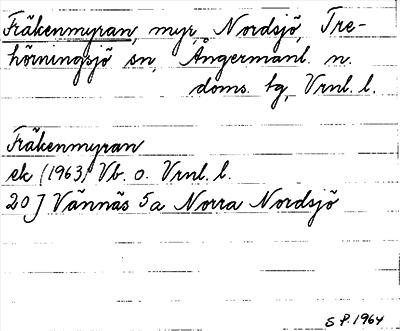 Fräkenmyran, myr, Nordsjö, Tre-
hörningsjö sn, Ångermanl. n.
doms. tg, Vrnl. l.
Fräkenmyran
ek (1963) Vb. o. Vrnl. l.
20J Vännäs 5a Norra Nordsjö
S P. 1964